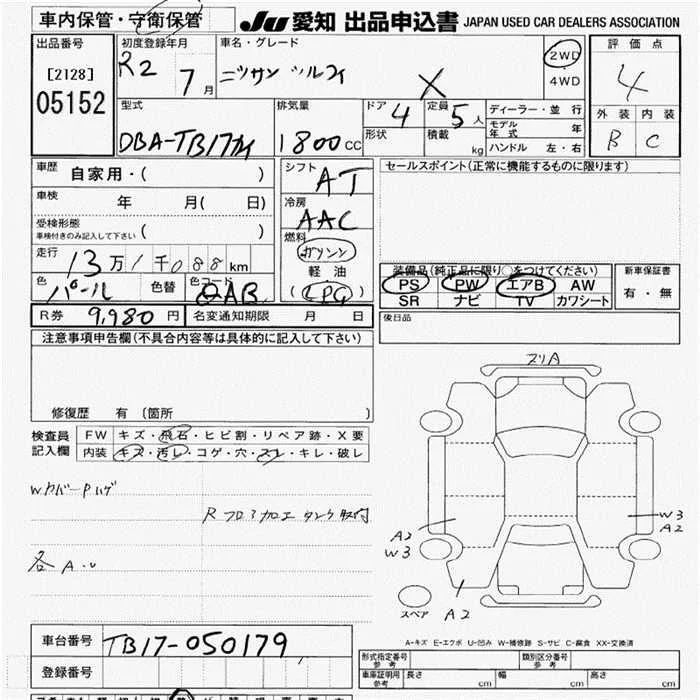 車内保管・守衛保管 JU 愛知 出品申込書 JAPAN USED CAR DEALERS ASSOCIATION
出品番号 初度登録年月 車名・グレード 2WD 4WD 評価点
[2128] 05152 R2 7月 ニッサン シルフィ X 4
型式 排気量 ドア 4 定員 5人 ディーラー・並行 外装 内装
DBA-TB17 1800cc 形状 積載 kg モデル年式 年 B C
ハンドル 左・右
車歴 自家用・( ) シフト AT セールスポイント(正常に機能するものに限ります)
車検 年 月( 日) 冷房 AAC
受検形態 車検付きのみ記入して下さい ( ) 燃料 ガソリン
走行 13万1千088km 軽油 装備品(純正品に限り○をつけてください) 新車保証書
色 パール 色替 色コード QAB (LPG) PS PW エアB AW 有・無
SR ナビ TV カワシート
R券 9,980円 名変通知期限 月 日 後日品
注意事項申告欄(不具合内容等は具体的に記入して下さい)
修復歴 有 [箇所 ]
検査員記入欄 FW キズ・飛石・ヒビ割・リペア跡・X要
内装 キズ・汚レ・コゲ・穴・スレ・キレ・破レ
WカバーPハゲ
Rフロア加工 タンク取付
各A.U
スリA
A2
W3
W3
A2
スペア A2
A-キズ E-エクボ U-凹み W-補修跡 S-サビ C-腐食 XX-交換済
車台番号 TB17-050179
登録番号
形式指定番号 参考 類別区分番号 参考
車庫証明用 参考 長さ cm 幅 cm 高さ cm